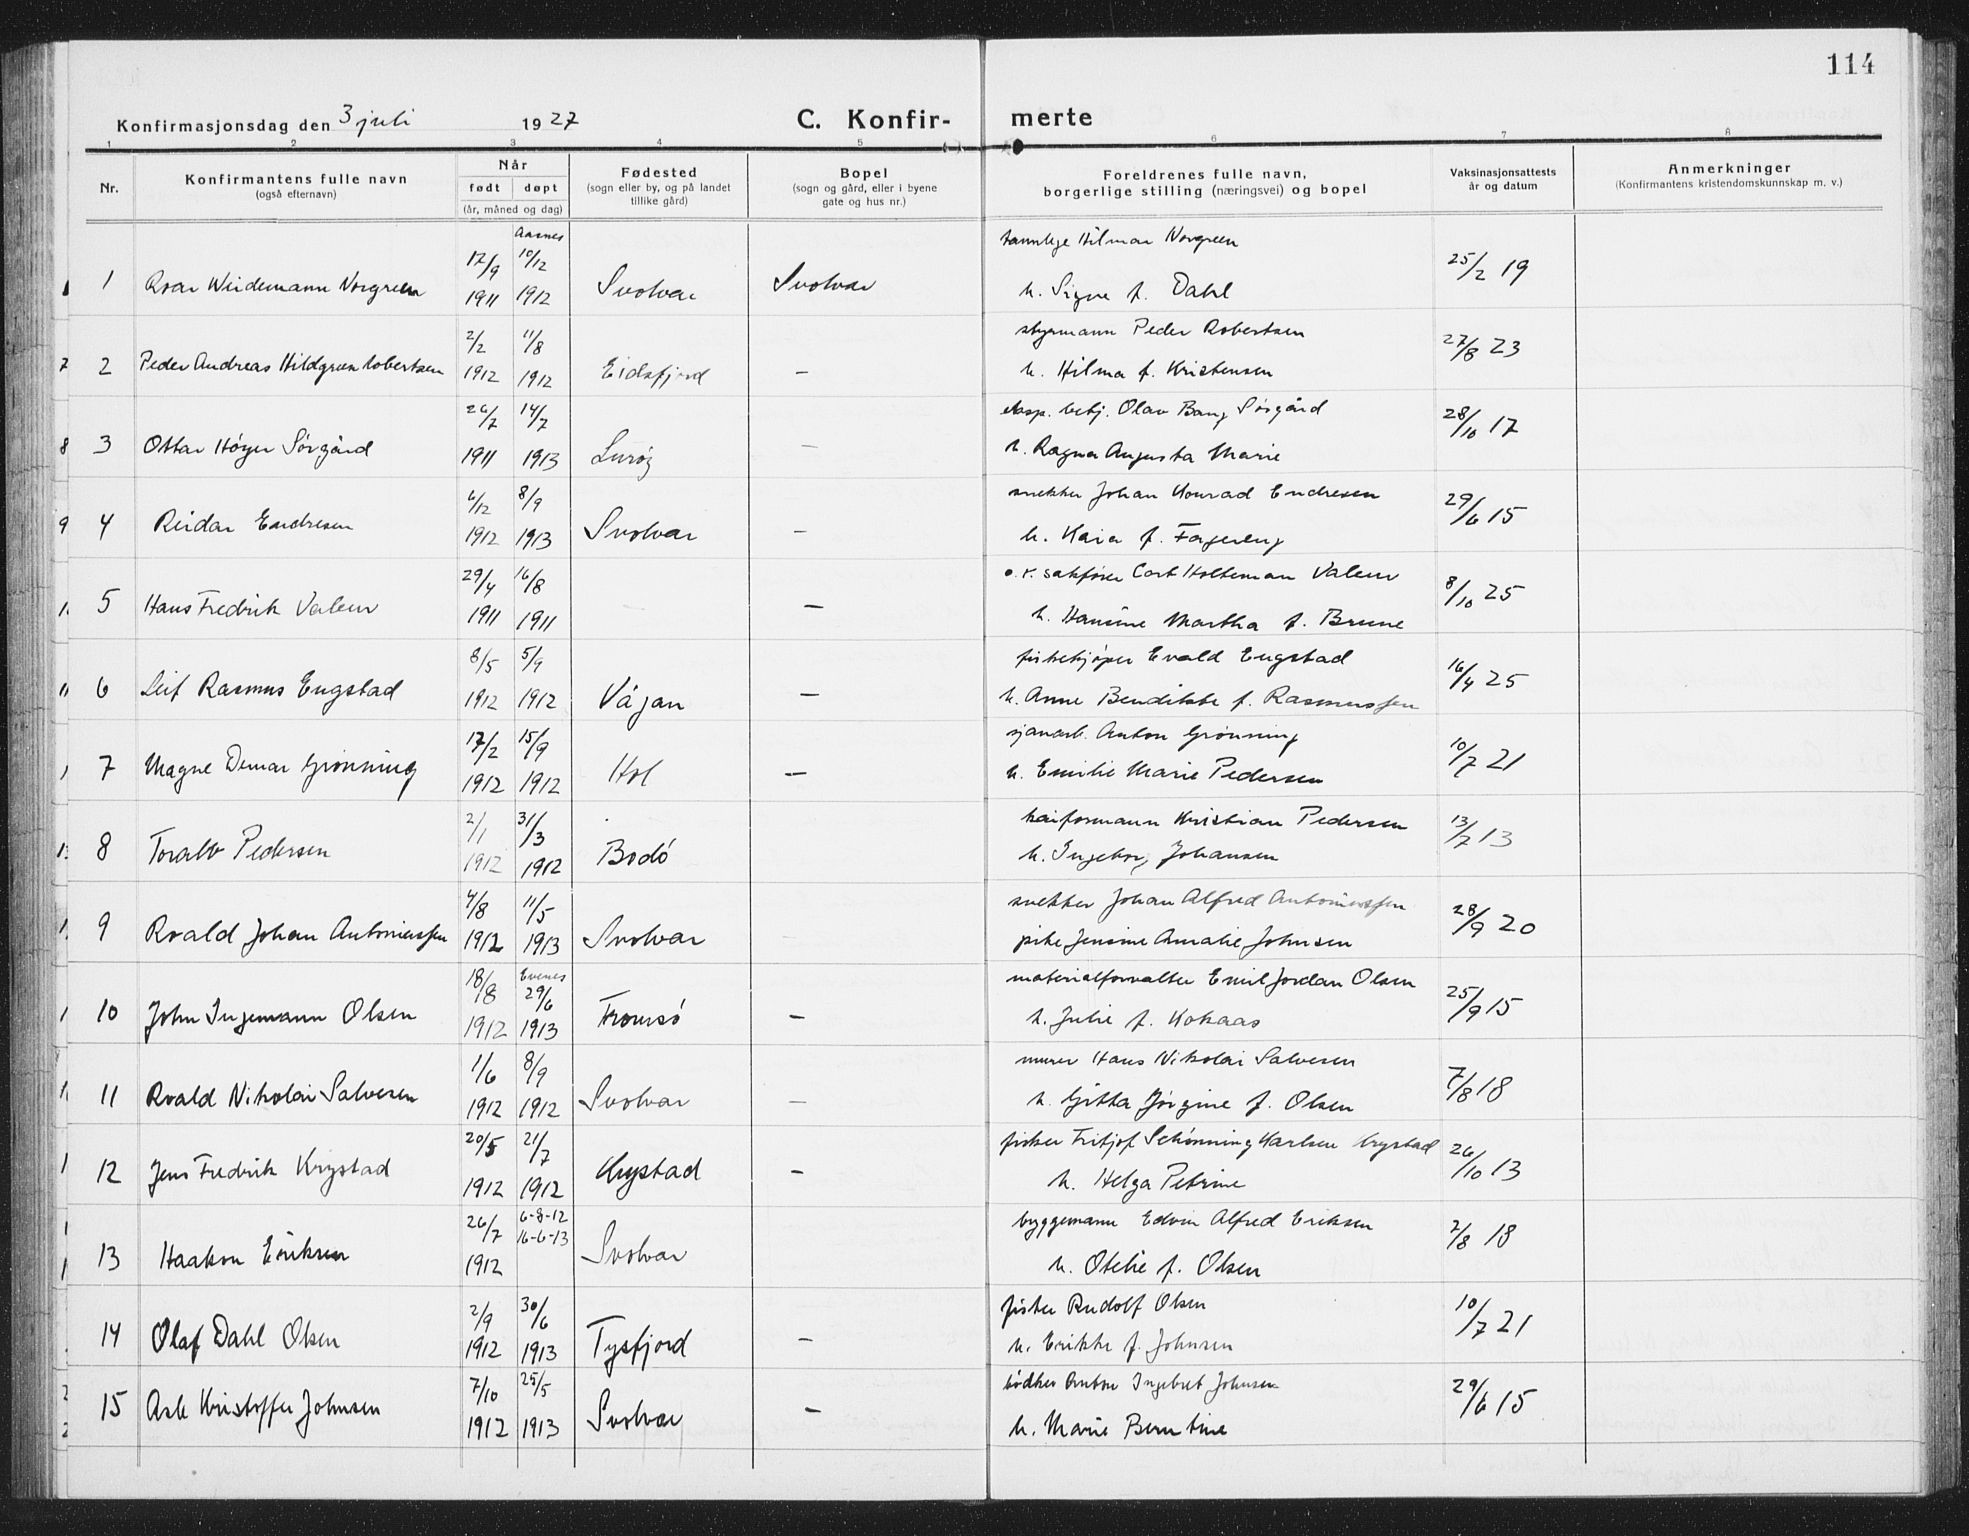 114
Konfirmasjonsdag den 3 juli 1927
C. Konfir- merte
1 2 3 4 5 6 7 8
Nr.
Konfirmantens fulle navn
(også efternavn)
Når
født døpt
(år, måned og dag)
Fødested
(sogn eller by, og på landet
tillike gård)
Bopel
(sogn og gård, eller i byene
gate og hus nr.)
Foreldrenes fulle navn,
borgerlige stilling (næringsvei) og bopel
Vaksinasjonsattests
år og datum
Anmerkninger
(Konfirmantens kristendomskunnskap m. v.)
Aasnes
17/9 10/12 tannlege Hilmar Norgreen 25/2 19
1 Roar Weidemann Norgreen 1911 1912 Svolvær Svolvær h. Signe f. Dahl
2/2 11/8 styrmann Peder Robertsen 27/8 23
2 Peder Andreas Hildgren Robertsen 1912 1912 Eidsfjord — h. Hilma f. Kristensen
26/7 14/7 eksp. betj. Olav Bang Sørgård 28/10 17
3 Ottar Høyer Sørgård 1911 1913 Lurøy — h. Ragna Augusta Marie
6/12 8/9 snekker Johan Konrad Endresen 29/6 15
4 Reidar Endresen 1912 1913 Svolvær — h. Kaia f. Fagereng
29/4 16/8 o.r. sakfører Carl Holteman Valeur 8/10 25
5 Hans Fredrik Valeur 1911 1911 — h. Hansine Martha f. Brune
8/5 5/9 fiskekjøper Evald Engstad 16/4 25
6 Leif Rasmus Engstad 1912 1912 Vågan — h. Anne Bendikte f. Rasmussen
17/2 15/9 sjauarb. Anton Grønning 10/7 21
7 Magne Demar Grønning 1912 1912 Hol — h. Emilie Marie Pedersen
2/1 31/3 kaiformann Kristian Pedersen 13/7 13
8 Toralv Pedersen 1912 1912 Bodø h. Ingeborg Johansen
4/8 11/5 snekker Johan Alfred Antoniussen 28/9 20
9 Roald Johan Antoniussen 1912 1913 Svolvær pike Jensine Amalie Johnsen
Evenes
18/8 29/6 materialforvalter Emil Jordan Olsen 25/9 15
10 John Ingemann Olsen 1912 1913 Tromsø — h. Julie f. Kokaas
1/6 8/9 murer Hans Nikolai Salvesen 7/8 18
11 Roald Nikolai Salvesen 1912 1912 Svolvær — h. Gitta Jørgine f. Olsen
20/5 21/7 fisker Fritjof Schønning Karlsen Krystad 26/10 13
12 Jens Fredrik Krystad 1912 1912 Krystad — h. Helga Petrine
26/7 6-8-12 byggemann Edvin Alfred Eriksen 2/8 18
16-6-13
13 Haakon Eriksen 1912 Svolvær h. Otelie f. Olsen
2/9 30/6 fisker Rudolf Olsen 10/7 21
14 Olaf Dahl Olsen 1912 1913 Tysfjord — h. Erikke f. Johnsen
7/10 25/5 bødker Anton Ingebret Johnsen 29/6 15
15 Asle Kristoffer Johnsen 1912 1913 Svolvær — h. Marie Berntine